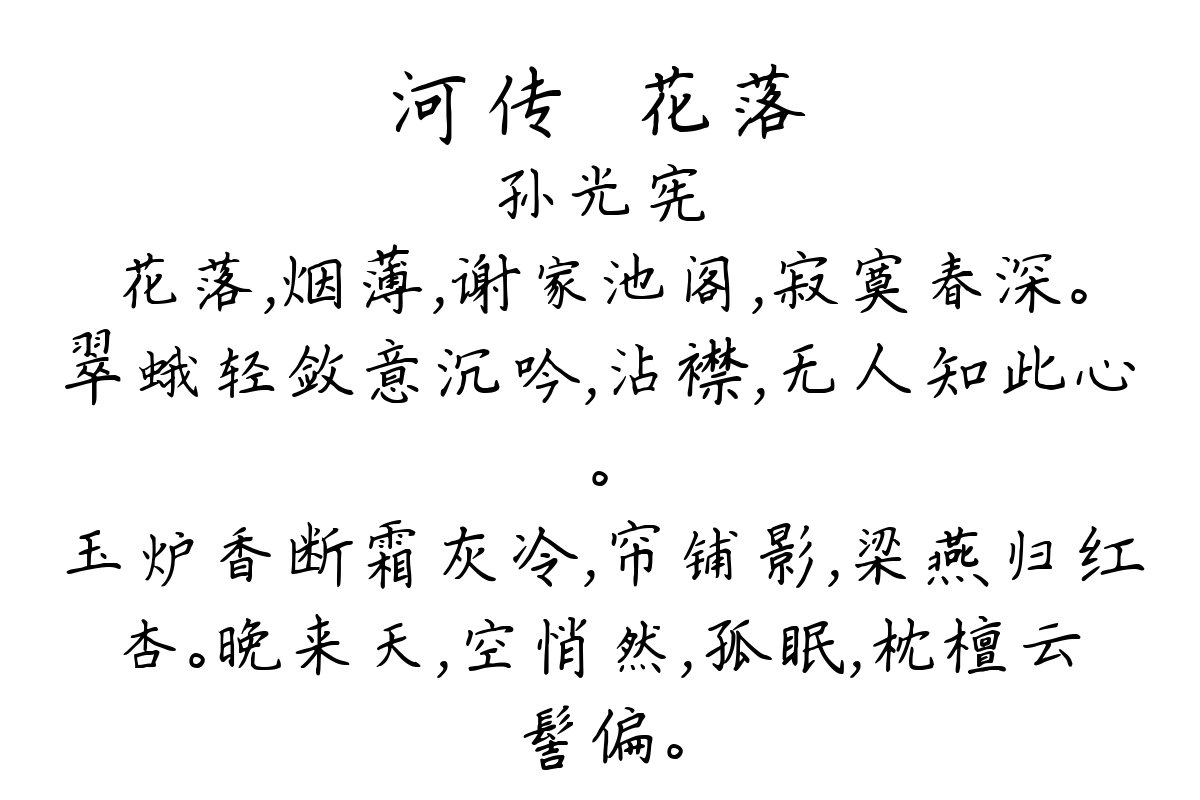 河传 花落
孙光宪
花落,烟薄,谢家池阁,寂寞春深。
翠蛾轻敛意沉吟,沾襟,无人知此心
。
玉炉香断霜灰冷,帘铺影,梁燕归红
杏。晚来天,空悄然,孤眠,枕檀云
髻偏。